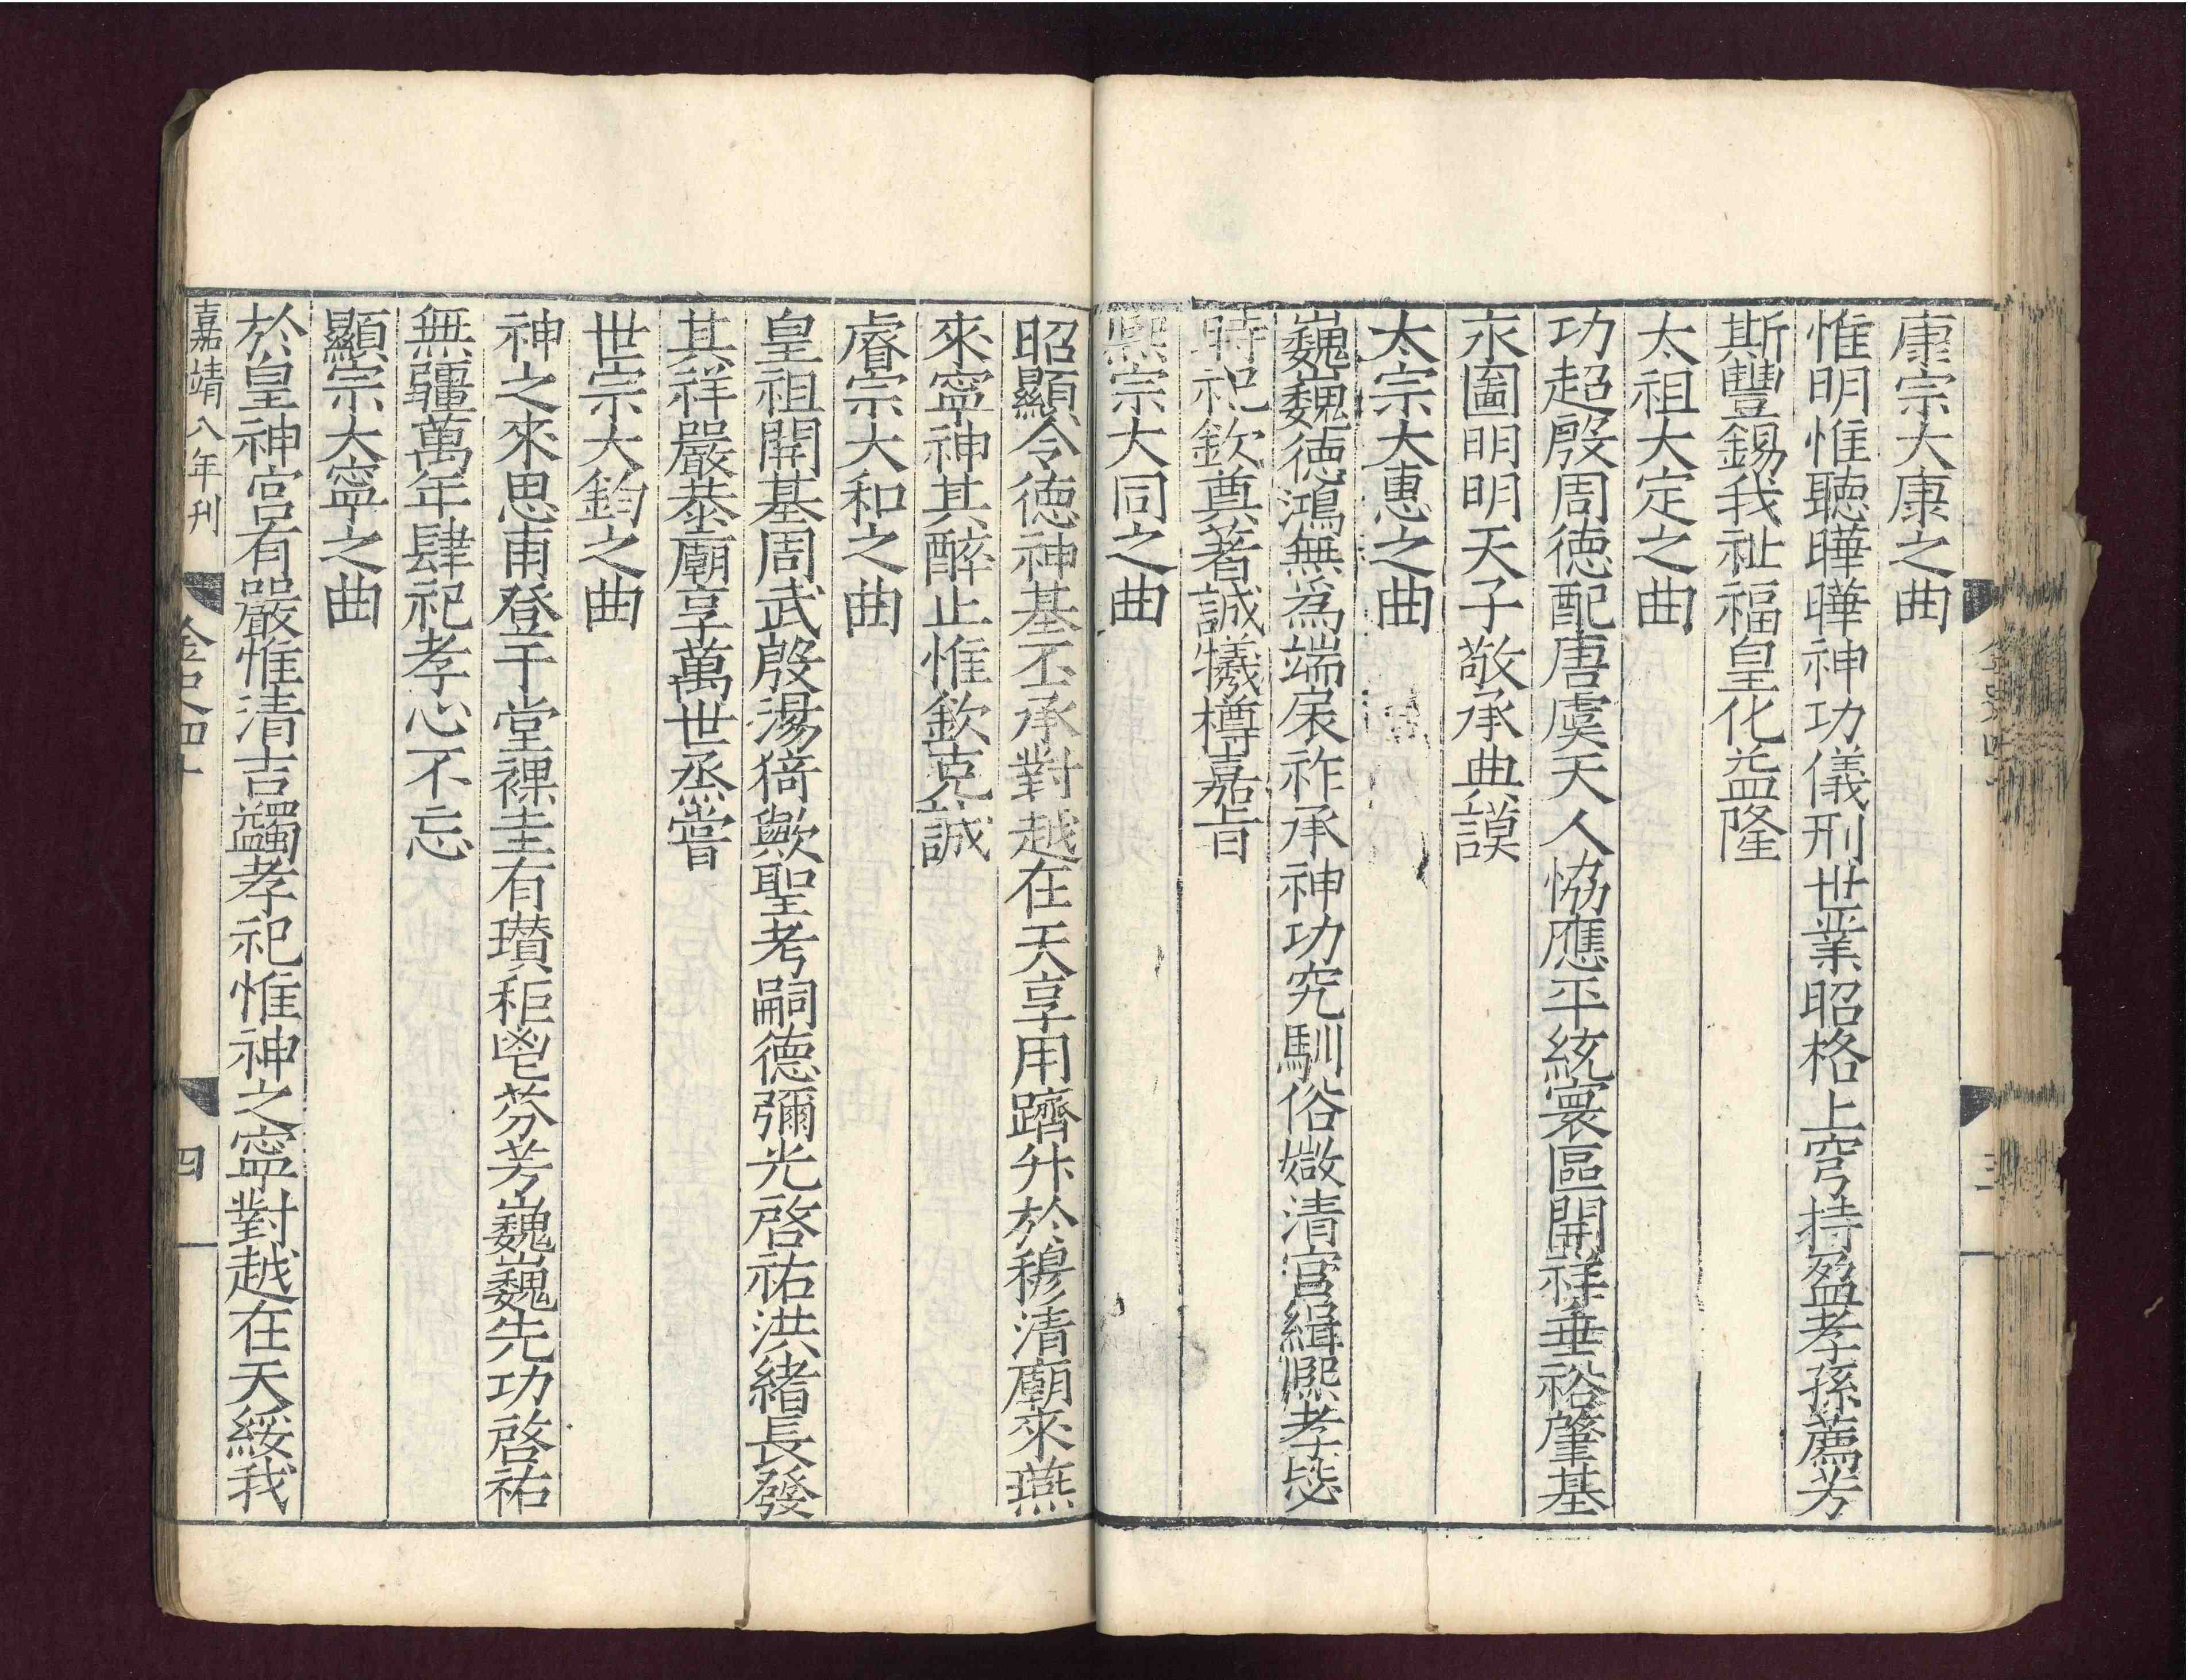 康宗大康之曲
惟明惟聽曄曄神功儀刑世業昭格上穹持盈孝孫薦芳
斯豐錫我祉福皇化益隆
太祖大定之曲
功超殷周德配唐虞天人恊應平統寰區開祥垂裕肇基
永圖明明天子敬承典謨
太宗大惠之曲
巍巍德鴻無為端扆祚承神功究馴俗媺清宮緝熙孝毖
時祀欽奠著誠犧樽嘉旨
熙宗大同之曲
昭顯令德神基丕承對越在天享用躋升於穆清廟來燕
來寧神其醉止惟欽克誠
睿宗大和之曲
皇祖開基周武殷湯猗歟聖考嗣德彌光啓祐洪緒長發
其祥嚴恭廟享萬世烝嘗
世宗大鈞之曲
神之來思甫登于堂祼圭有瓚秬鬯芬芳巍巍先功啓祐
無疆萬年肆祀孝心不忘
顯宗大寧之曲
於皇神宮有嚴惟清吉蠲孝祀惟神之寧對越在天綏我
嘉靖八年刊
金史四十
四